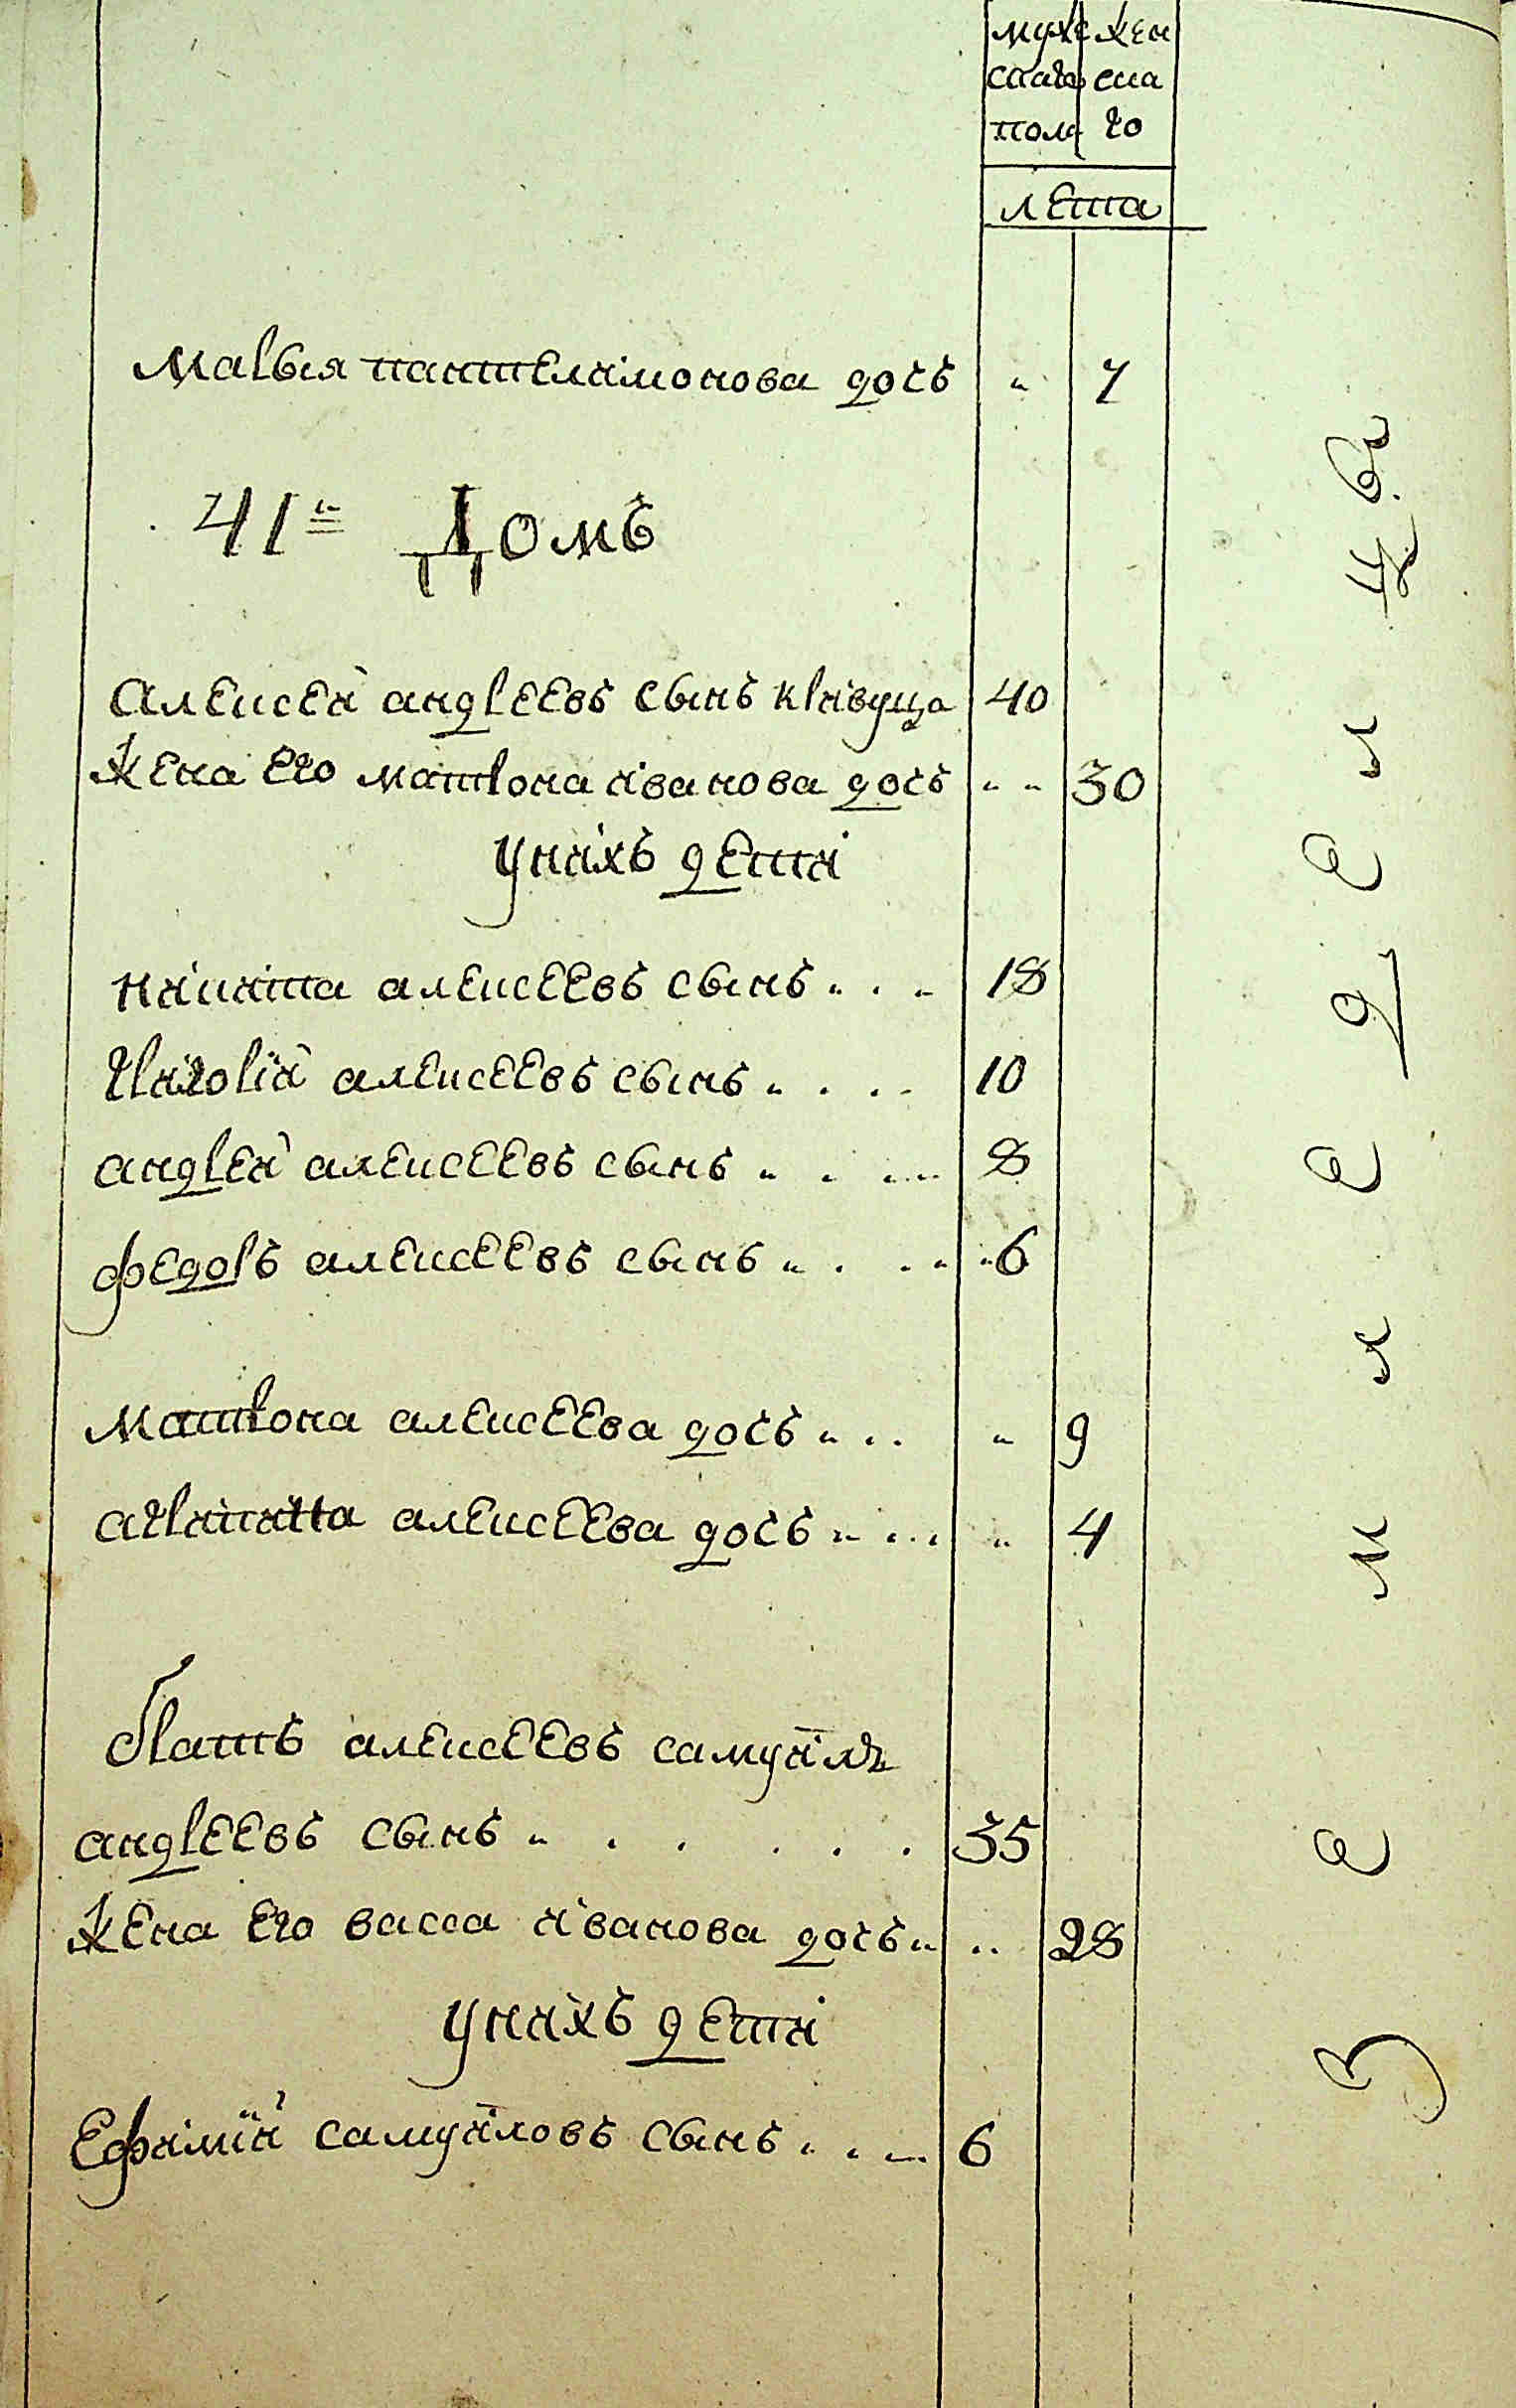 мужс жен
скаго ска
пола го
лета
Марья пантелимонова дочь " 7
41й Домъ
Алексей андреевъ сынъ кривуца 40
Жена его матрона иванова дочь " " 30
унихъ дети
никита алексеевъ сынъ 18
Григорій алексеевъ сынъ 10
андрей алексеевъ сынъ 8
федоръ алексеевъ сынъ 6
Матрона алексеева дочь " 9
агрипина алексеева дочь " 4
братъ алексеевъ самуилъ
андреевъ сынъ 35
Жена его васса иванова дочь 28
унихъ дети
Ефимій самуиловъ сынъ 6